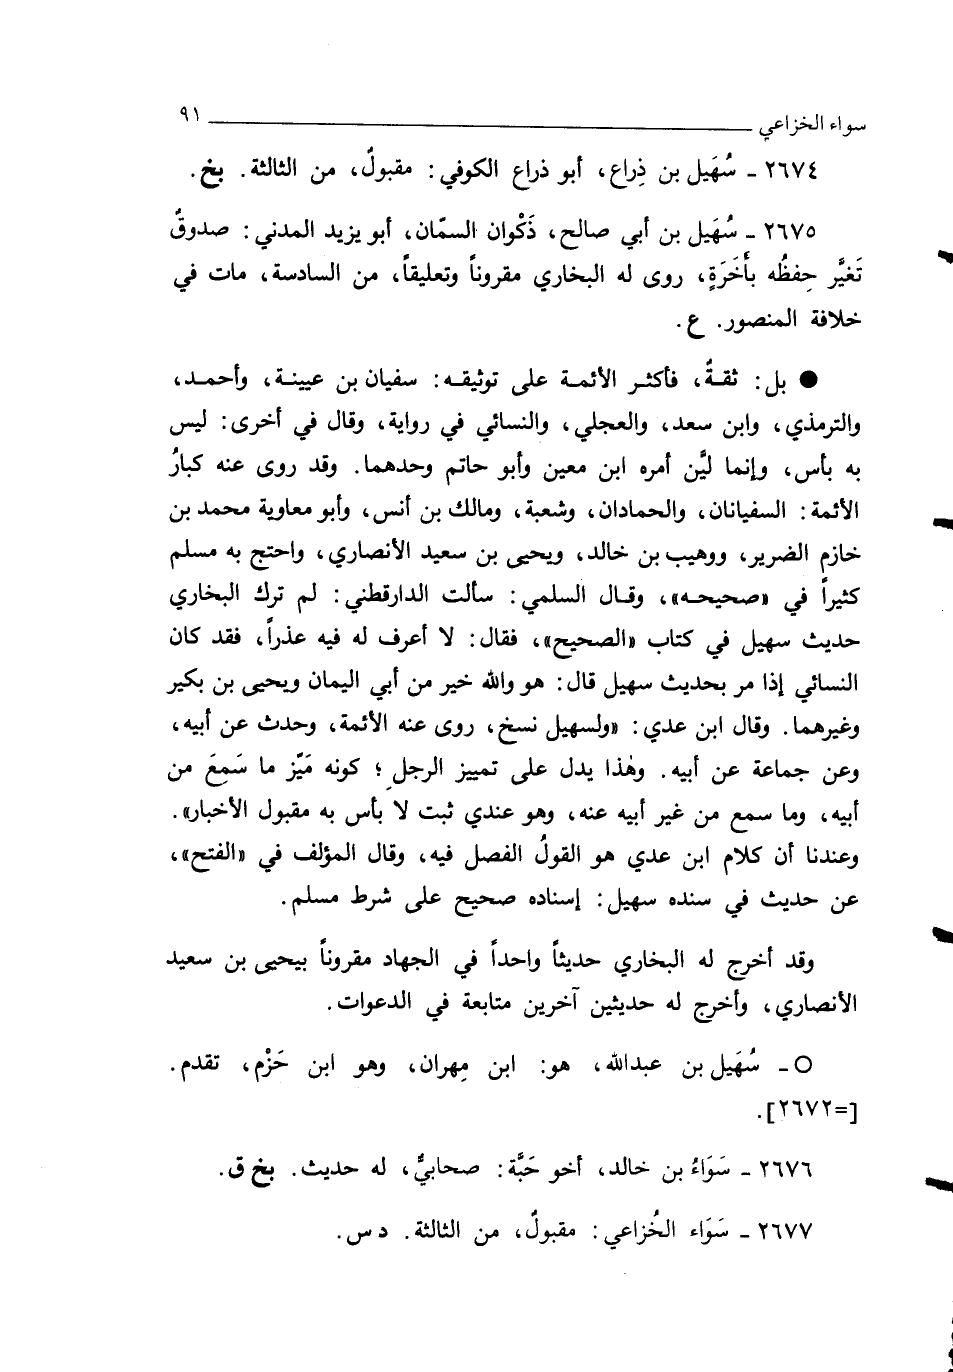 سواء الخزاعي ٩١
٢٦٧٤ ـ سُهَيل بن ذِراع، أبو ذراع الكوفي: مقبولٌ، من الثالثة. بخ.
٢٦٧٥ ـ سُهَيل بن أبي صالح، ذَكْوان السمّان، أبو يزيد المدني: صدوقٌ
تَغيَّر حِفظُه بأَخَرَةٍ، روى له البخاري مقروناً وتعليقاً، من السادسة، مات في
خلافة المنصور. ع.
● بل: ثقةٌ، فأكثـر الأئمـة على توثيقـه: سفيان بن عيينـة، وأحمـد،
والترمذي، وابن سعد، والعجلي، والنسائي في رواية، وقال في أخرى: ليس
به بأس، وإنما ليَّن أمره ابن معين وأبو حاتم وحدهما. وقد روى عنه كبارُ
الأئمة: السفيانان، والحمادان، وشعبة، ومالك بن أنس، وأبو معاوية محمد بن
خازم الضرير، ووهيب بن خالد، ويحيى بن سعيد الأنصاري، واحتج به مسلم
كثيراً في «صحيحـه»، وقـال السلمي: سألت الدارقطني: لم ترك البخاري
حديث سهيل في كتاب «الصحيح»، فقال: لا أعرف له فيه عذراً، فقد كان
النسائي إذا مر بحديث سهيل قال: هو والله خير من أبي اليمان ويحيى بن بكير
وغيرهما. وقال ابن عدي: «ولسهيل نسخ، روى عنه الأئمة، وحدث عن أبيه،
وعن جماعة عن أبيه. وهٰذا يدل على تمييز الرجل؛ كونه مَيّز ما سَمِعَ من
أبيه، وما سمع من غير أبيه عنه، وهو عندي ثبت لا بأس به مقبول الأخبار».
وعندنا أن كلام ابن عدي هو القولُ الفصل فيه، وقال المؤلف في «الفتح»،
عن حديث في سنده سهيل: إسناده صحيح على شرط مسلم.
وقد أخرج له البخاري حديثاً واحداً في الجهاد مقروناً بيحيى بن سعيد
الأنصاري، وأخرج له حديثين آخرين متابعة في الدعوات.
○ ـ سُهَيل بن عبدالله، هو: ابن مِهران، وهو ابن حَزْم، تقدم.
[=٢٦٧٢].
٢٦٧٦ ـ سَوَاءُ بن خالد، أخو حَبَّة: صحابيٌّ، له حديث. بخ ق.
٢٦٧٧ ـ سَوَاء الخُزاعي: مقبولٌ، من الثالثة. د س.